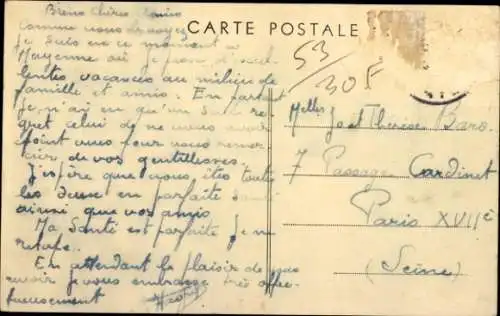 CARTE POSTALE
Bien Chères Amies
Comme vous le voyez
je suis en ce moment à
Mayenne où je passe d'excel-
lentes vacances au milieu de
famille et amis. En partant
je n'ai eu qu'un seul re-
gret celui de ne vous avoir
point vues pour vous remer-
cier de vos gentillesses.
J'espère que vous êtes toutes
les deux en parfaite santé
ainsi que vos amis
Ma Santé est parfaite je me
repose..
En attendant le plaisir de vous
revoir je vous embrasse très affec-
tueusement
53
305
Melles Jo et Thérèse
7 Passage Cardinet
Paris XVIIe
(Seine)